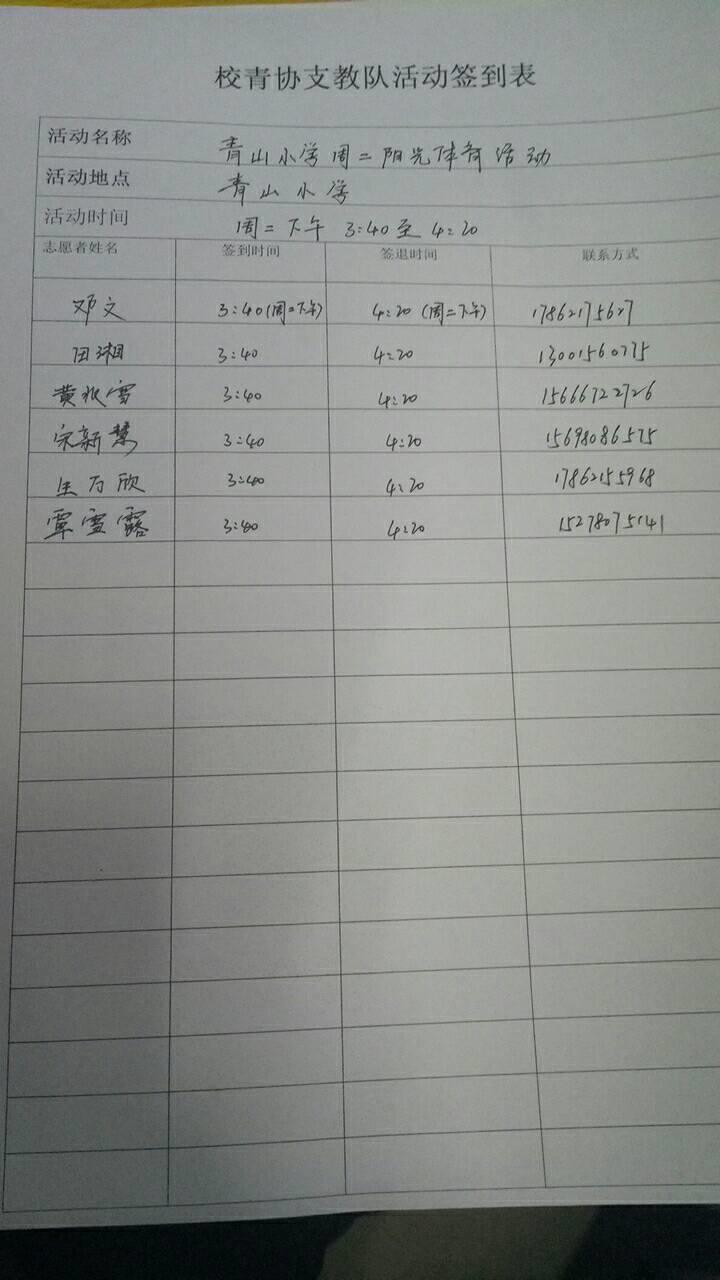 校青协支教队活动签到表
活动名称 青山小学周二阳光体育活动
活动地点 青山小学
活动时间 周二下午 3:40至 4:20
志愿者姓名 签到时间 签退时间 联系方式
邓文 3:40(周二下午) 4:20 (周二下午) 17862175627
田湘 3:40 4:20 13001560775
黄秋雪 3:40 4:20 15666722726
宋新慧 3:40 4:20 15698086575
王万欣 3:40 4:20 17862155968
覃雪露 3:40 4:20 15278075141